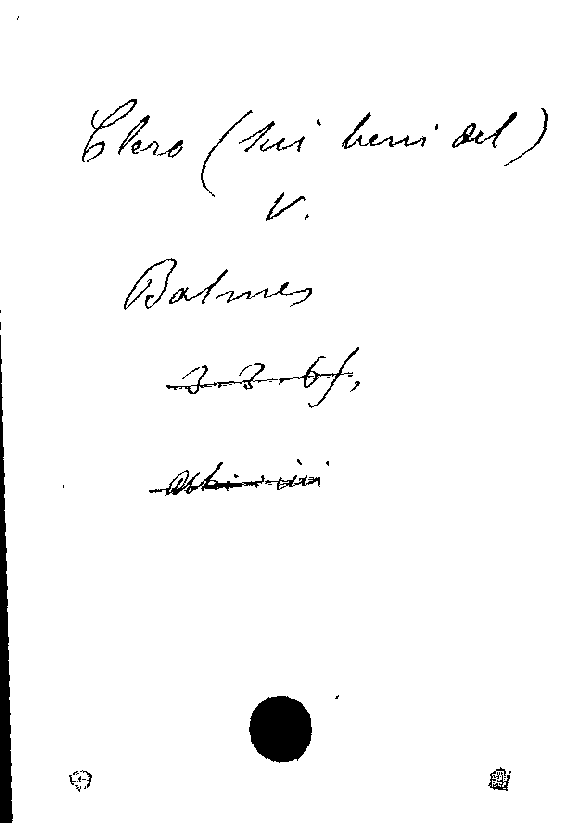 Clero (sui beni del)
V.
Balmes
3. 3. 6f,